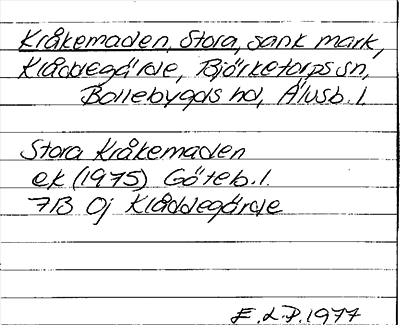 Kråkemaden, Stora, sank mark,
Kláddegärde, Björketorps sn,
Bollebygds hd, Älvsb. l.
Stora Kråkemaden
ek (1975) Göteb. l.
7B 0j Kláddegärde
E.L.P. 1977